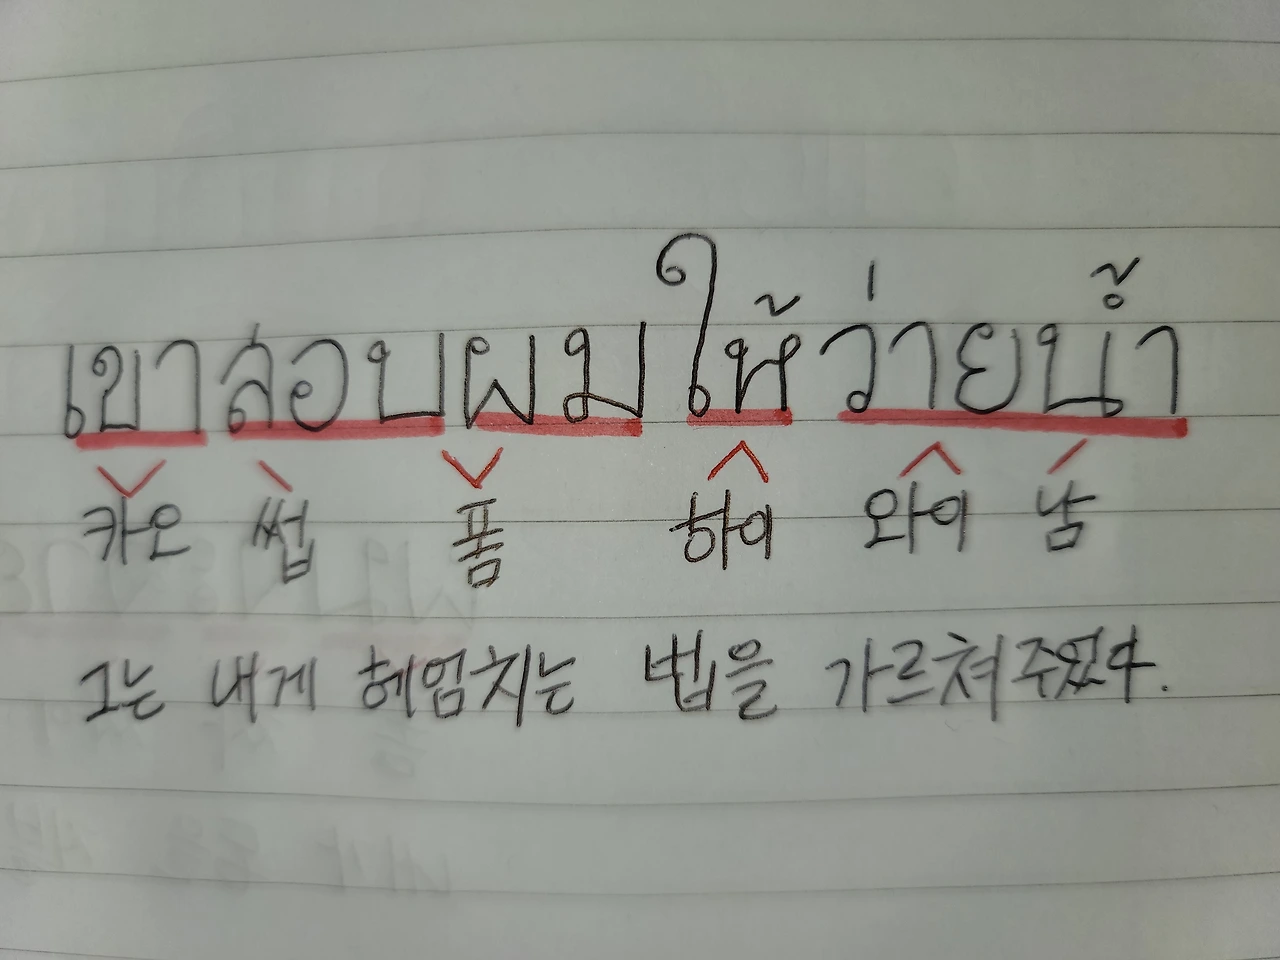 เขาสอบผมให้ว่ายน้ำ
카오 썹 폼 하이 와이 남
그는 내게 헤엄치는 법을 가르쳐주었다.